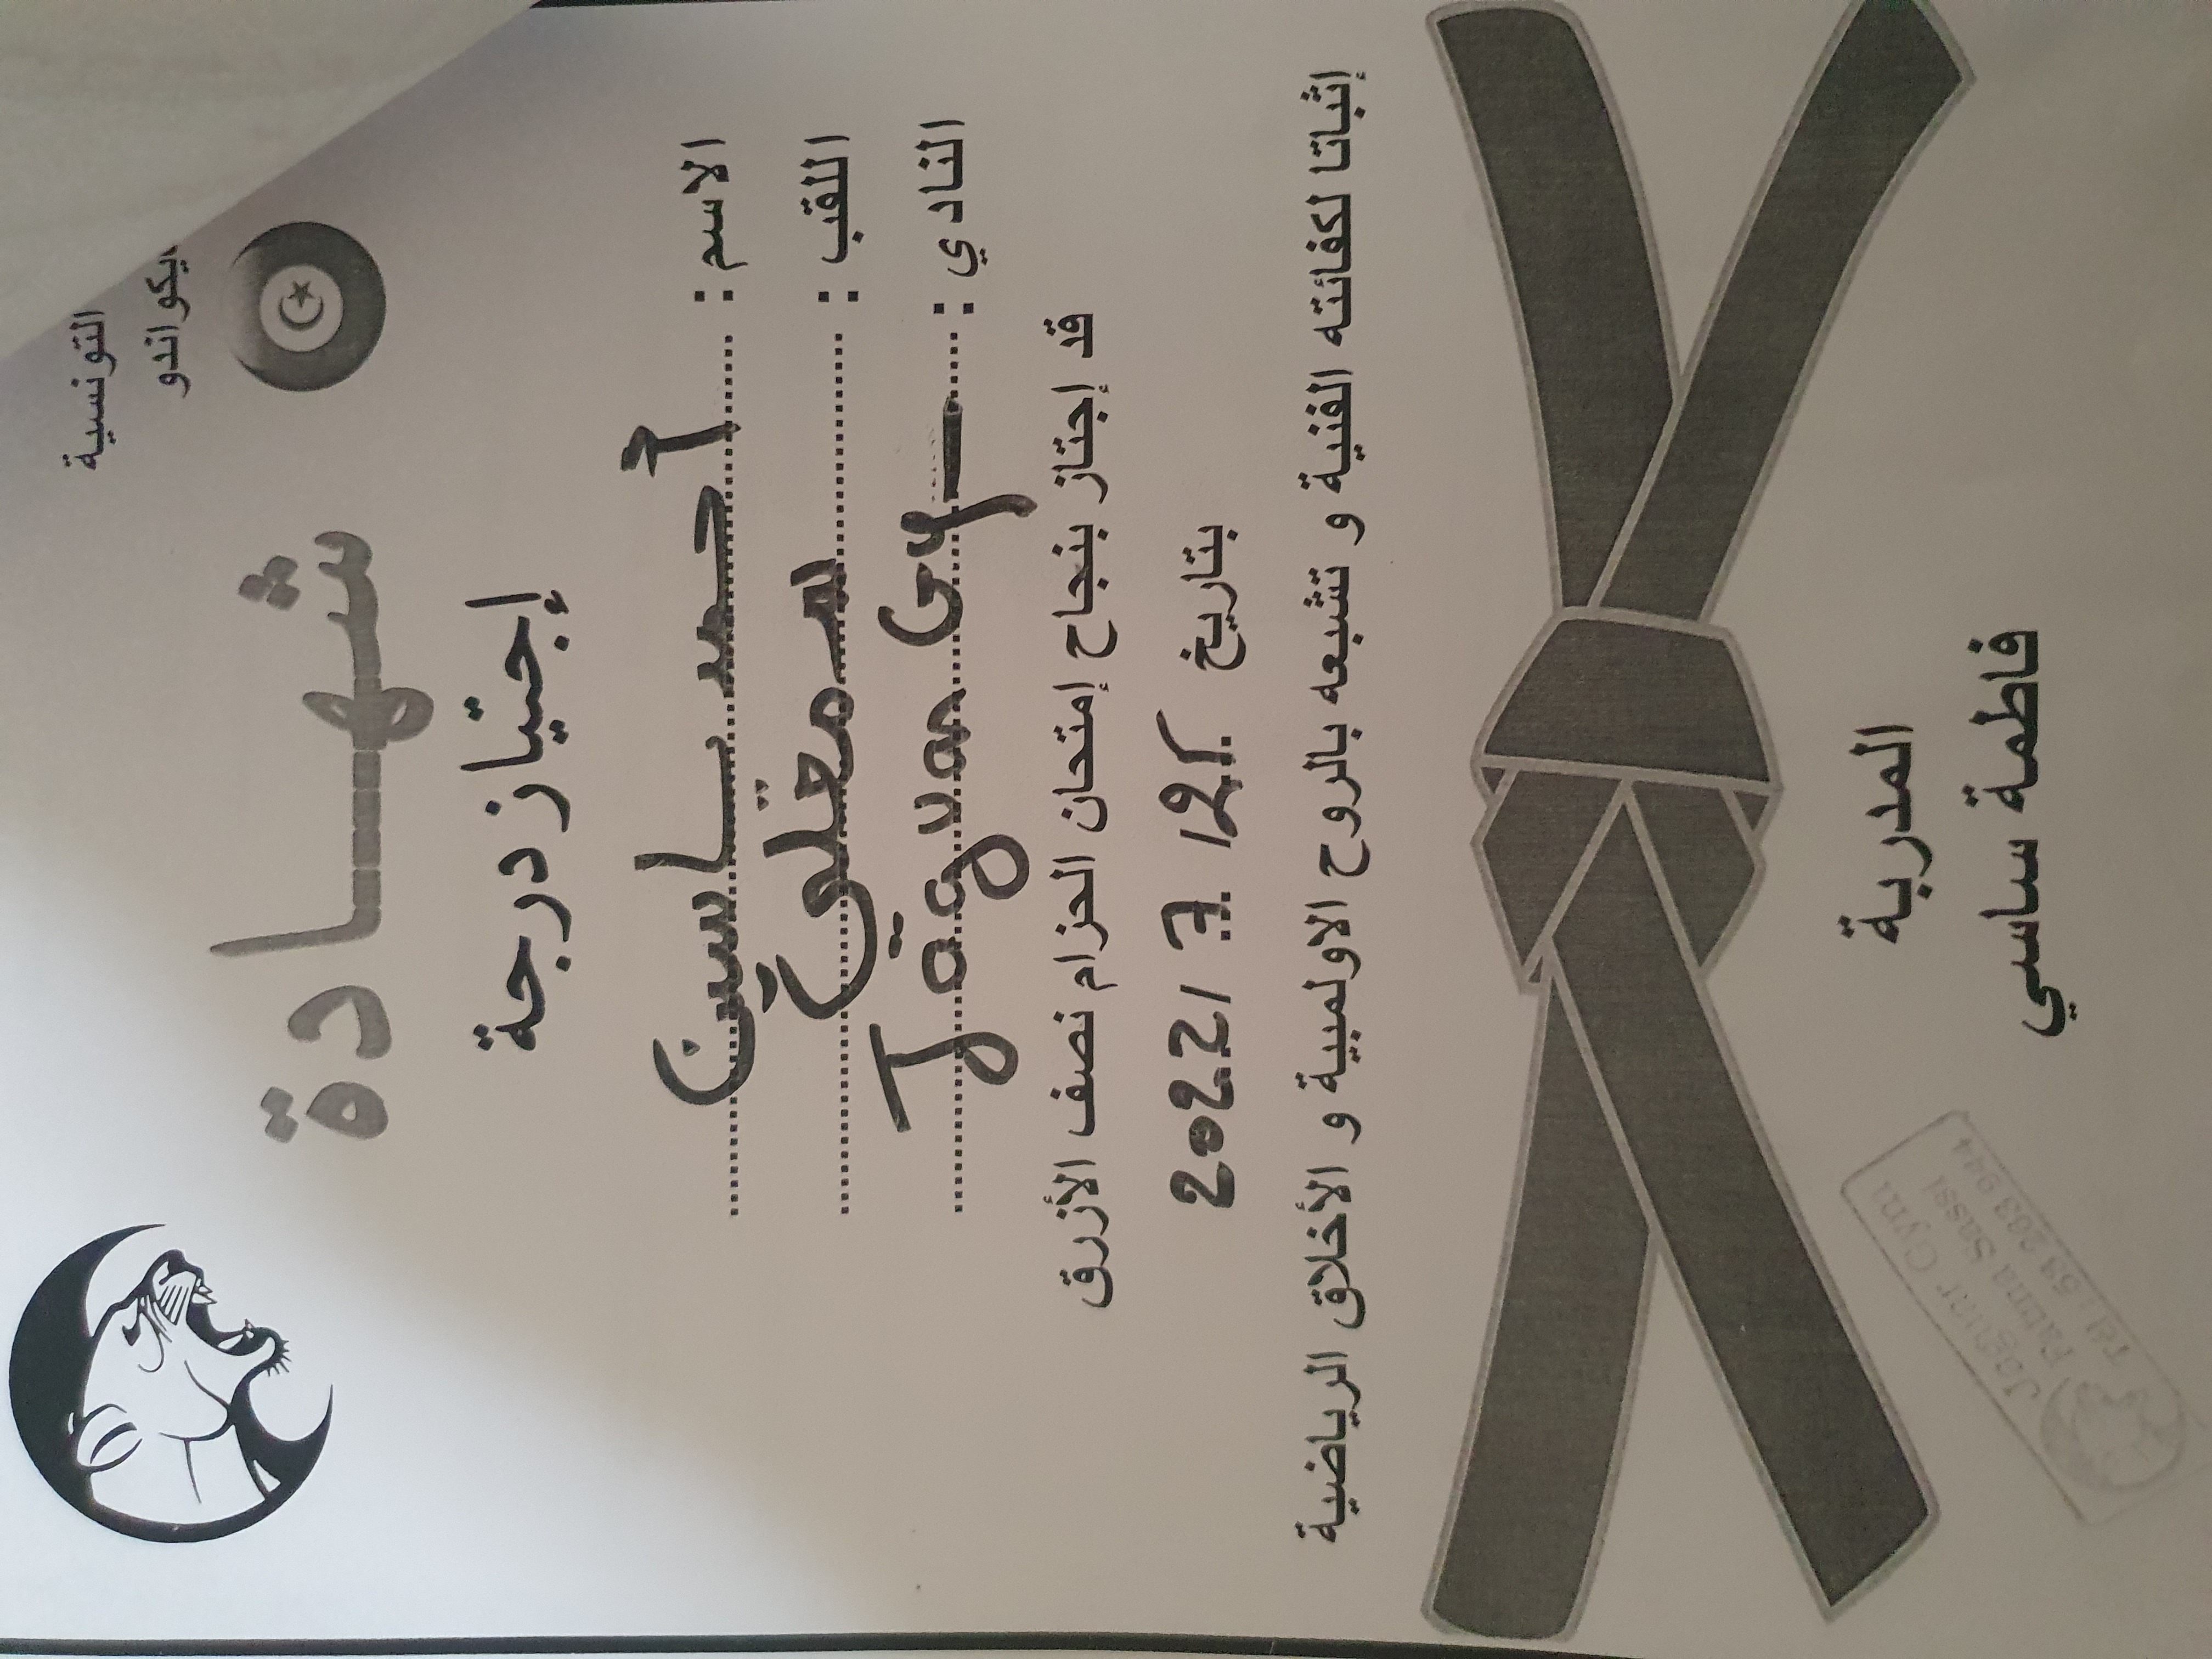 التونسية
ايكواندو
شهادة
إجتياز درجة
الاسم : أحمد ياسين
اللقب : معلى
النادي : Jaguar Gym
قد إجتاز بنجاح إمتحان الحزام نصف الأزرق
بتاريخ 2022/7/21
إثباتا لكفائته الفنية و تشبعه بالروح الاولمبية و الأخلاق الرياضية
المدربة
فاطمة ساسي
Jaguar Gym
Fatma Sassi
Tél : 53 203 944